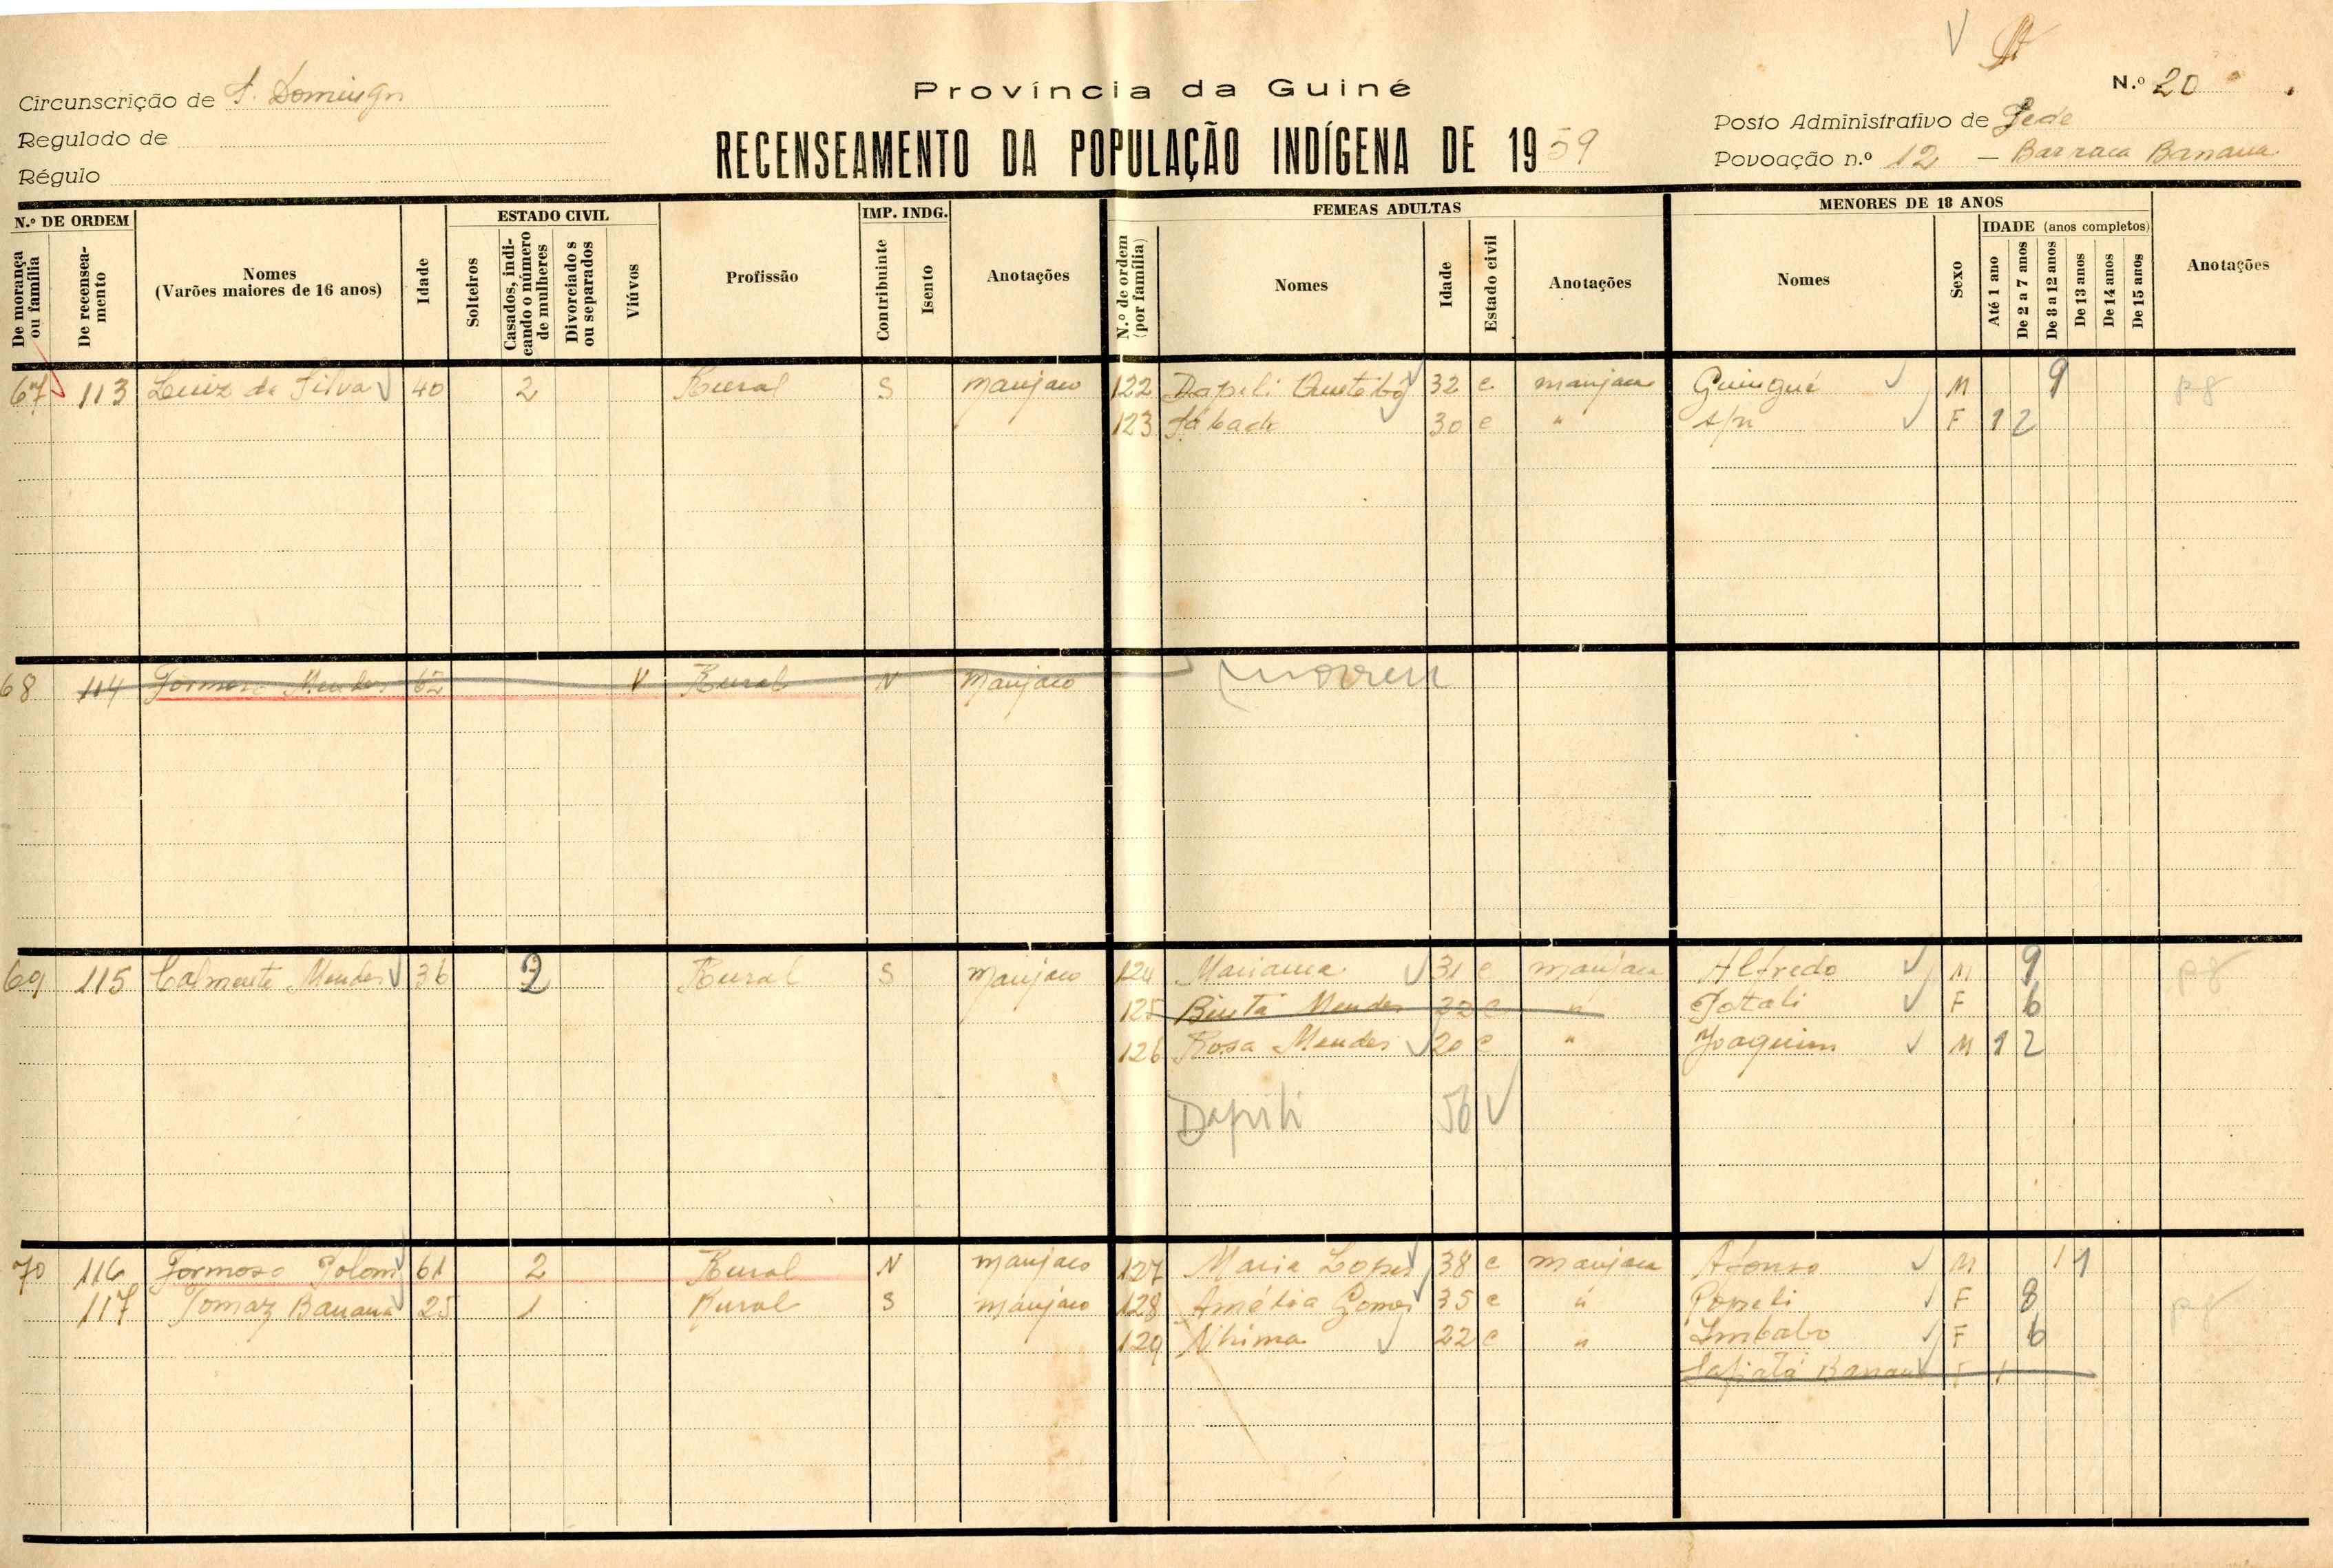 V
Circunscrição de S. Domingos
Província da Guiné
N.º 20
Regulado de
RECENSEAMENTO DA POPULAÇÃO INDÍGENA DE 1959
Posto Administrativo de Sede
Régulo
Povoação n.º 12 — Barraca Banana
N.º DE ORDEM
De morança ou família
De recenseamento
Nomes
(Varões maiores de 16 anos)
Idade
ESTADO CIVIL
Solteiros
Casados, indicando o número de mulheres
Divorciados ou separados
Viúvos
Profissão
IMP. INDG.
Contribuinte
Isento
Anotações
FEMEAS ADULTAS
N.º de ordem (por família)
Nomes
Idade
Estado civil
Anotações
MENORES DE 18 ANOS
Nomes
Sexo
IDADE (anos completos)
Até 1 ano
De 2 a 7 anos
De 8 a 12 anos
De 13 anos
De 14 anos
De 15 anos
Anotações
67 113 Luiz da Silva 40 2 Rural S manjaco 122 Dapeli 32 c. manjaca Guingué M 9 pg
123 Sábado 30 c " s/n F 1 2
68 114 Formoso Mendes 62 V Rural N manjaco morreu
69 115 Calmente Mendes 36 2 Rural S manjaco 124 Mariama 31 c manjaca Alfredo M 9 pg
125 Binta Mendes 22 c " Potali F 6
126 Rosa Mendes 20 c " Joaquim M 1 2
Dapili 56 V
70 116 Formoso 61 2 Rural N manjaco 127 Maria Lopes 38 c manjaca Afonso M 11
117 Tomaz Banana 25 1 Rural S manjaco 128 Amélia Gomes 35 c " Popeli F 8 pg
129 Nhima 22 c " Imbabo F 6
Safiatá Banana F 1